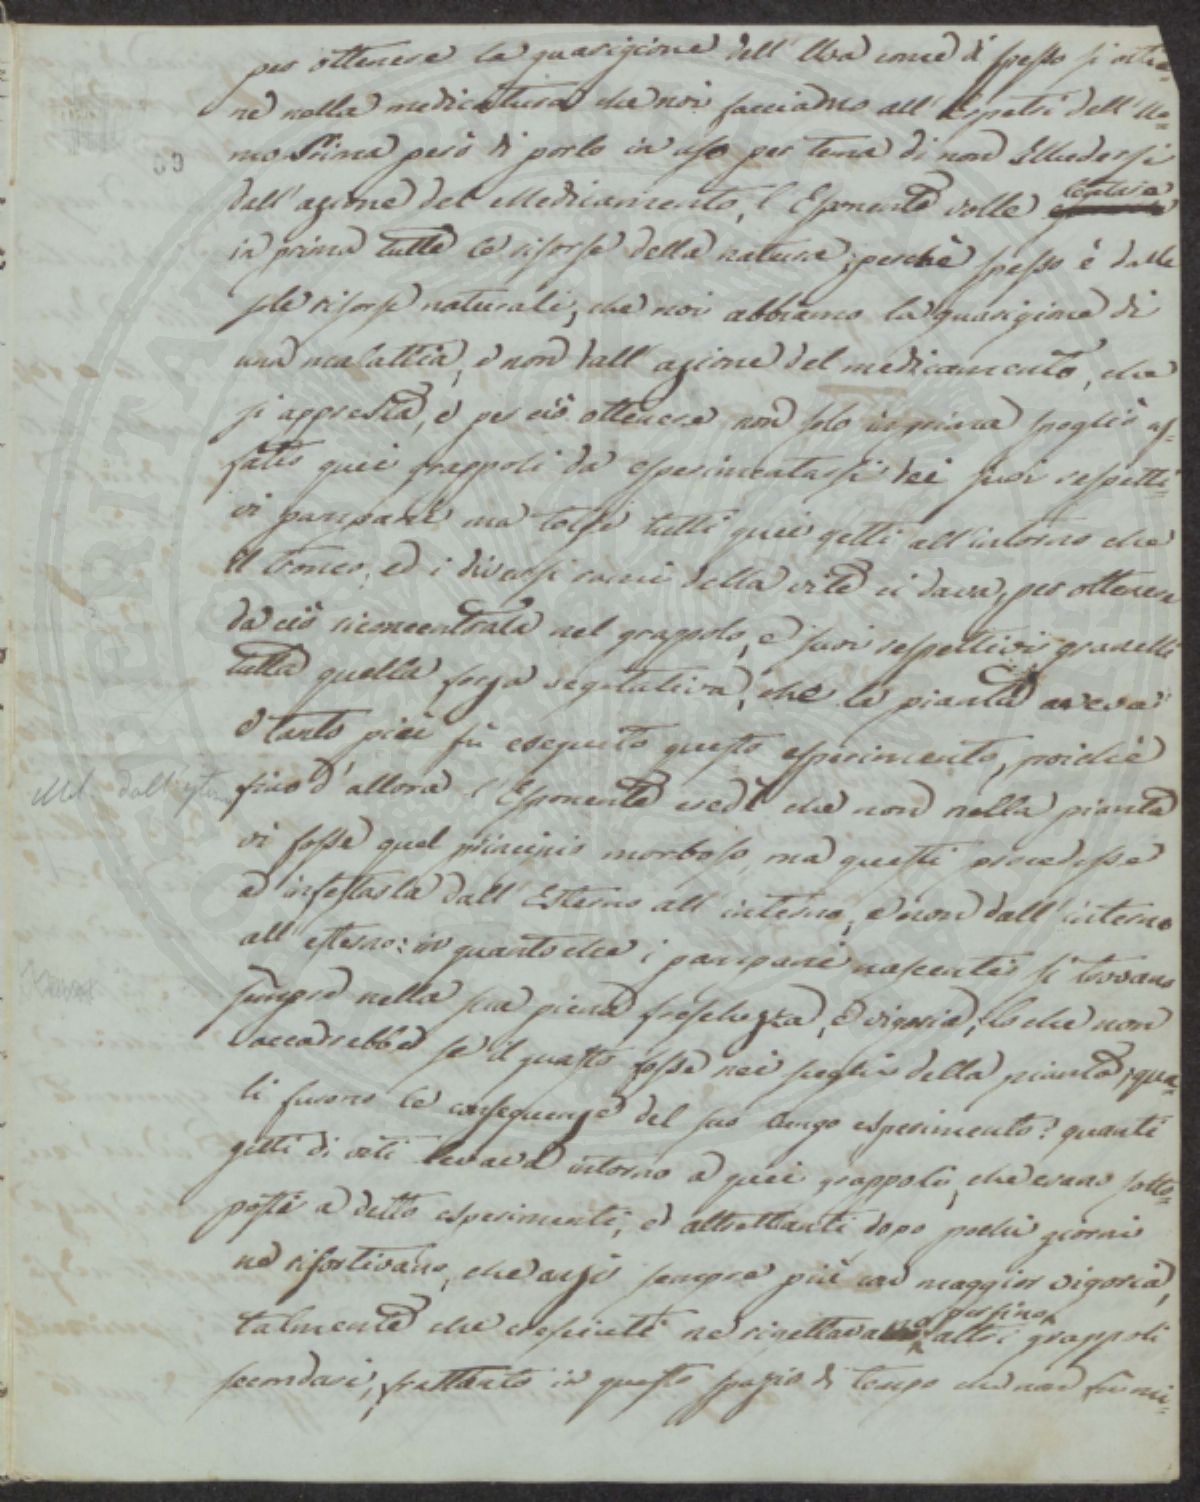 per ottenere la guarigione dell'Uva come di spesso si ottie=
ne nella medicatura che noi facciamo all'Erpetri dell'Uo=
mo. Prima però di porlo in uso per tema di non illudersi
dall'azione del Medicamento, l'Esponente volle tentare
in prima tutte le risorse della natura; perchè spesso è dalle
sole risorse naturali, che noi abbiamo la guarigione di
una malattia, e non dall'azione del medicamento, che
si appresta, e per ciò ottenere non solo in prima spogliò af=
fatto quei grappoli da esperimentarsi dei suoi respetti=
vi pampani ma tolse tutti quei getti all'intorno che
il tronco, ed i diversi rami della vite ci dava, per ottenere
da ciò riconcentrata nel grappolo, e suoi respettivi granelli
tutta quella forza vegetativa, che la pianta aveva
e tanto più fù eseguito questo esperimento, poichè
fino d'allora l'Esponente credè che non nella pianta
vi fosse quel principio morboso, ma questi procedesse
ad infestarla dall'Esterno all'interno, e non dall'interno
all'esterno: in quanto che i pampani nascenti si trovano
sempre nella sua piena freschezza, e vigoria, lo che non
accadrebbe se il guasto fosse nei  della pianta; qua=
li furono le conseguenze del suo lungo esperimento? quanti
getti di viti levava intorno a quei grappoli, che erano sotto=
posti a detto esperimenti, ed altrettanti dopo pochi giorni
ne risortivano, che anzi sempre più con maggior vigoria,
talmente che  ne rigettavano perfino altri grappoli
secondari, frattanto in questo spazio di tempo che non fù mi=
dall'ester
69